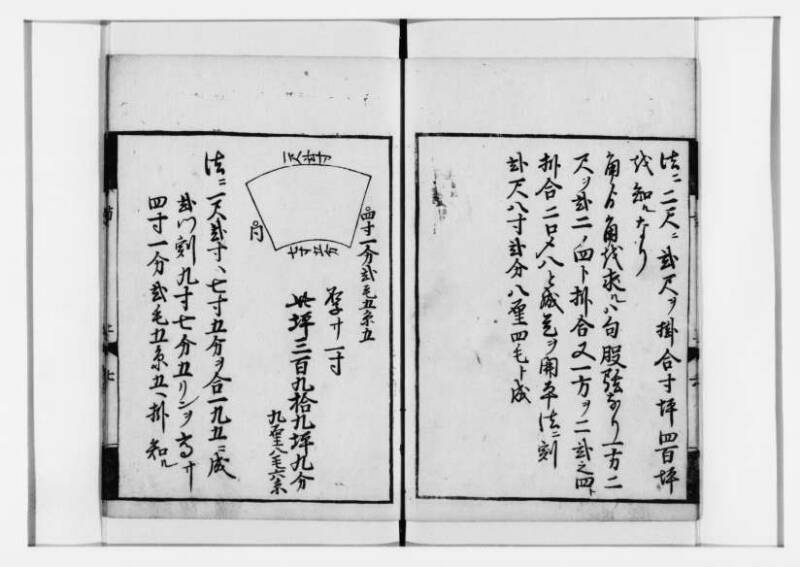 法ニ二尺ニ弐尺ヲ掛合寸坪四百坪
伐知ルなり
角ゟ角伐求ルハ勾股弦なり一方二
尺ヲ弐二ノ四ト掛合又一方ヲ二弐之四ト
掛合二口〆八と成是ヲ開平法ニ刻
弐尺八寸弐分八厘四毛ト成
四寸一分弐毛五糸五
厚サ一寸
此坪三百九拾九坪九分
九厘八毛六糸
法ニ一尺弐寸、七寸五分ヲ合一九五ニ成
弐ツニ刻九寸七分五リンヲ高サ
四寸一分弐毛五糸五、掛知ル